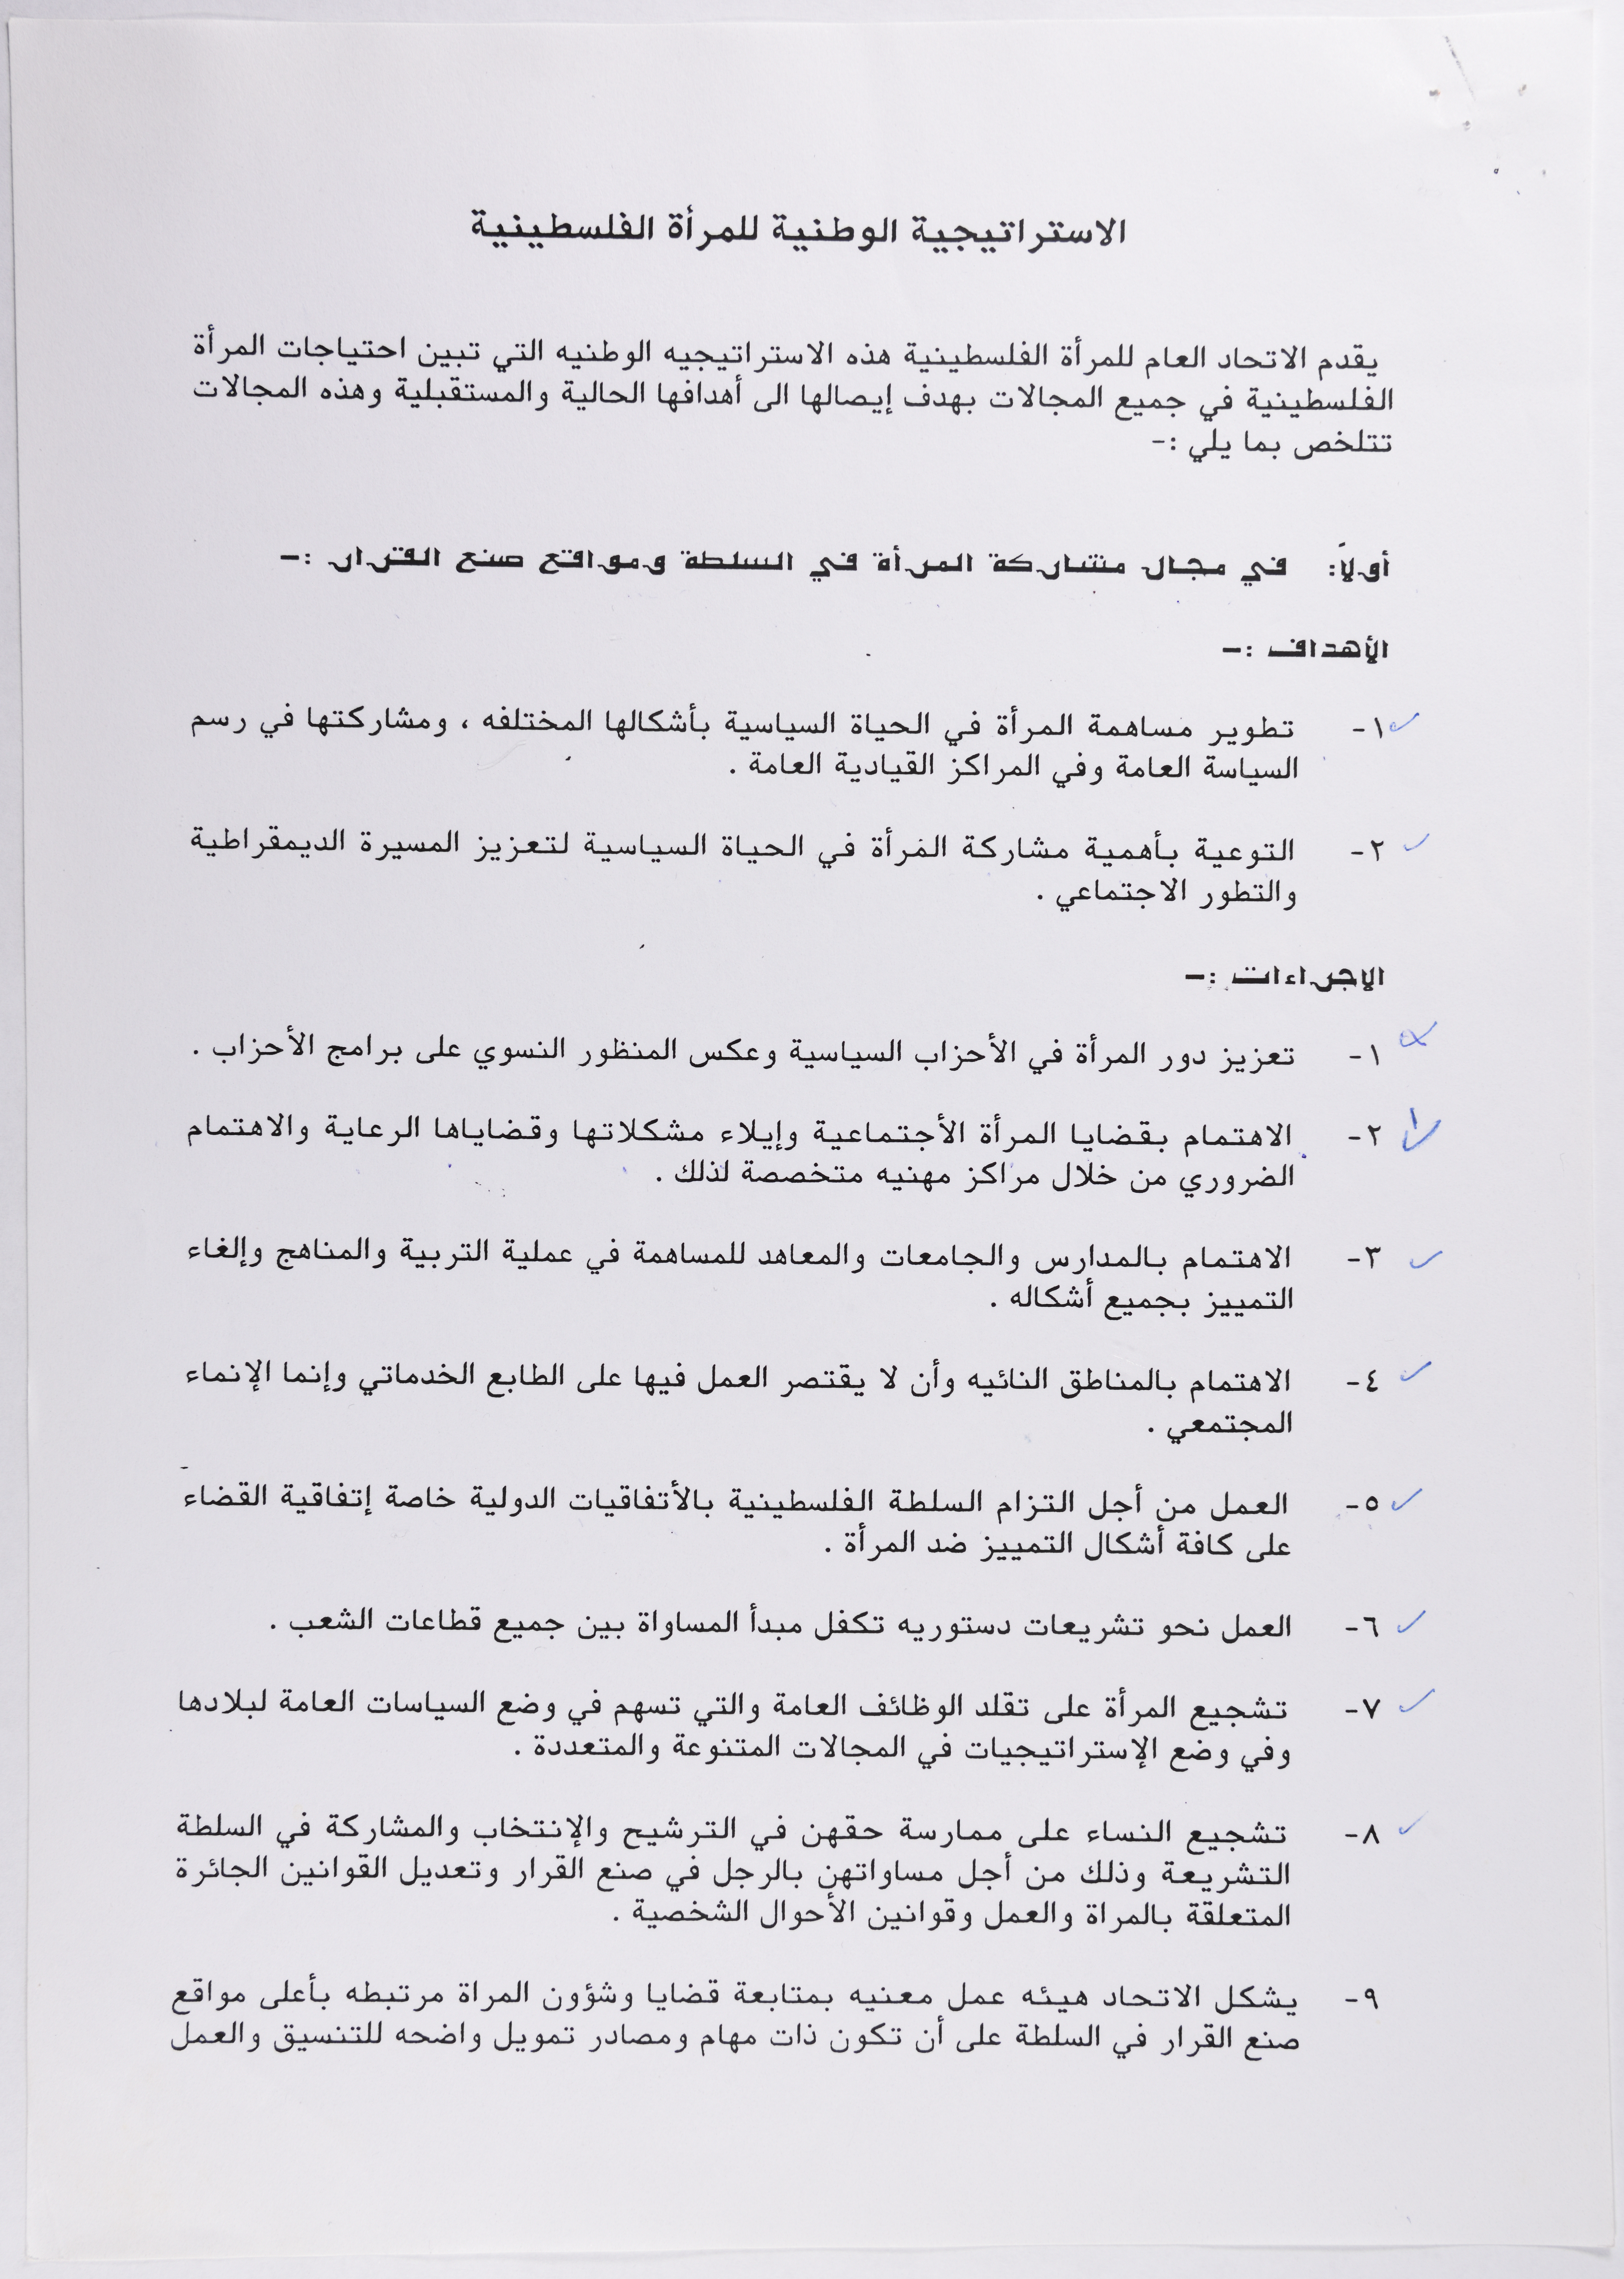 الاستراتيجية الوطنية للمرأة الفلسطينية
يقدم الاتحاد العام للمرأة الفلسطينية هذه الاستراتيجيه الوطنيه التي تبين احتياجات المرأة
الفلسطينية في جميع المجالات بهدف إيصالها الى أهدافها الحالية والمستقبلية وهذه المجالات
تتلخص بما يلي :-
أولاً: في مجال مشاركة المرأة في السلطة ومواقع صنع القرار :-
الأهداف :-
١- تطوير مساهمة المرأة في الحياة السياسية بأشكالها المختلفه ، ومشاركتها في رسم
السياسة العامة وفي المراكز القيادية العامة .
٢- التوعية بأهمية مشاركة المرأة في الحياة السياسية لتعزيز المسيرة الديمقراطية
والتطور الاجتماعي .
الاجراءات :-
١- تعزيز دور المرأة في الأحزاب السياسية وعكس المنظور النسوي على برامج الأحزاب .
٢- الاهتمام بقضايا المرأة الأجتماعية وإيلاء مشكلاتها وقضاياها الرعاية والاهتمام
الضروري من خلال مراكز مهنيه متخصصة لذلك .
٣- الاهتمام بالمدارس والجامعات والمعاهد للمساهمة في عملية التربية والمناهج وإلغاء
التمييز بجميع أشكاله .
٤- الاهتمام بالمناطق النائيه وأن لا يقتصر العمل فيها على الطابع الخدماتي وإنما الإنماء
المجتمعي .
٥- العمل من أجل التزام السلطة الفلسطينية بالأتفاقيات الدولية خاصة إتفاقية القضاء
على كافة أشكال التمييز ضد المرأة .
٦- العمل نحو تشريعات دستوريه تكفل مبدأ المساواة بين جميع قطاعات الشعب .
٧- تشجيع المرأة على تقلد الوظائف العامة والتي تسهم في وضع السياسات العامة لبلادها
وفي وضع الإستراتيجيات في المجالات المتنوعة والمتعددة .
٨- تشجيع النساء على ممارسة حقهن في الترشيح والإنتخاب والمشاركة في السلطة
التشريعة وذلك من أجل مساواتهن بالرجل في صنع القرار وتعديل القوانين الجائرة
المتعلقة بالمراة والعمل وقوانين الأحوال الشخصية .
٩- يشكل الاتحاد هيئه عمل معنيه بمتابعة قضايا وشؤون المراة مرتبطه بأعلى مواقع
صنع القرار في السلطة على أن تكون ذات مهام ومصادر تمويل واضحه للتنسيق والعمل